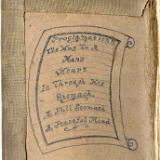 The Way To A
Mans
Heart
Is Through His
Stomach
A Full Stomach
A Peaceful Mind